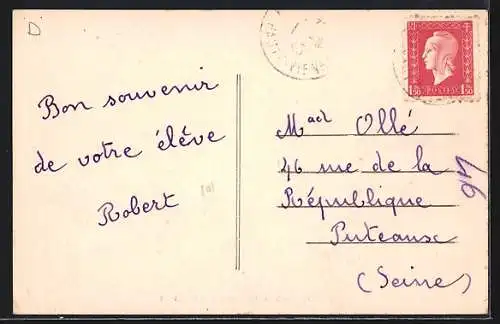 D
Bon souvenir
de votre élève
Robert
Mad Ollé
46 rue de la
République
Puteaux
(Seine)
1F50 POSTES 1F50